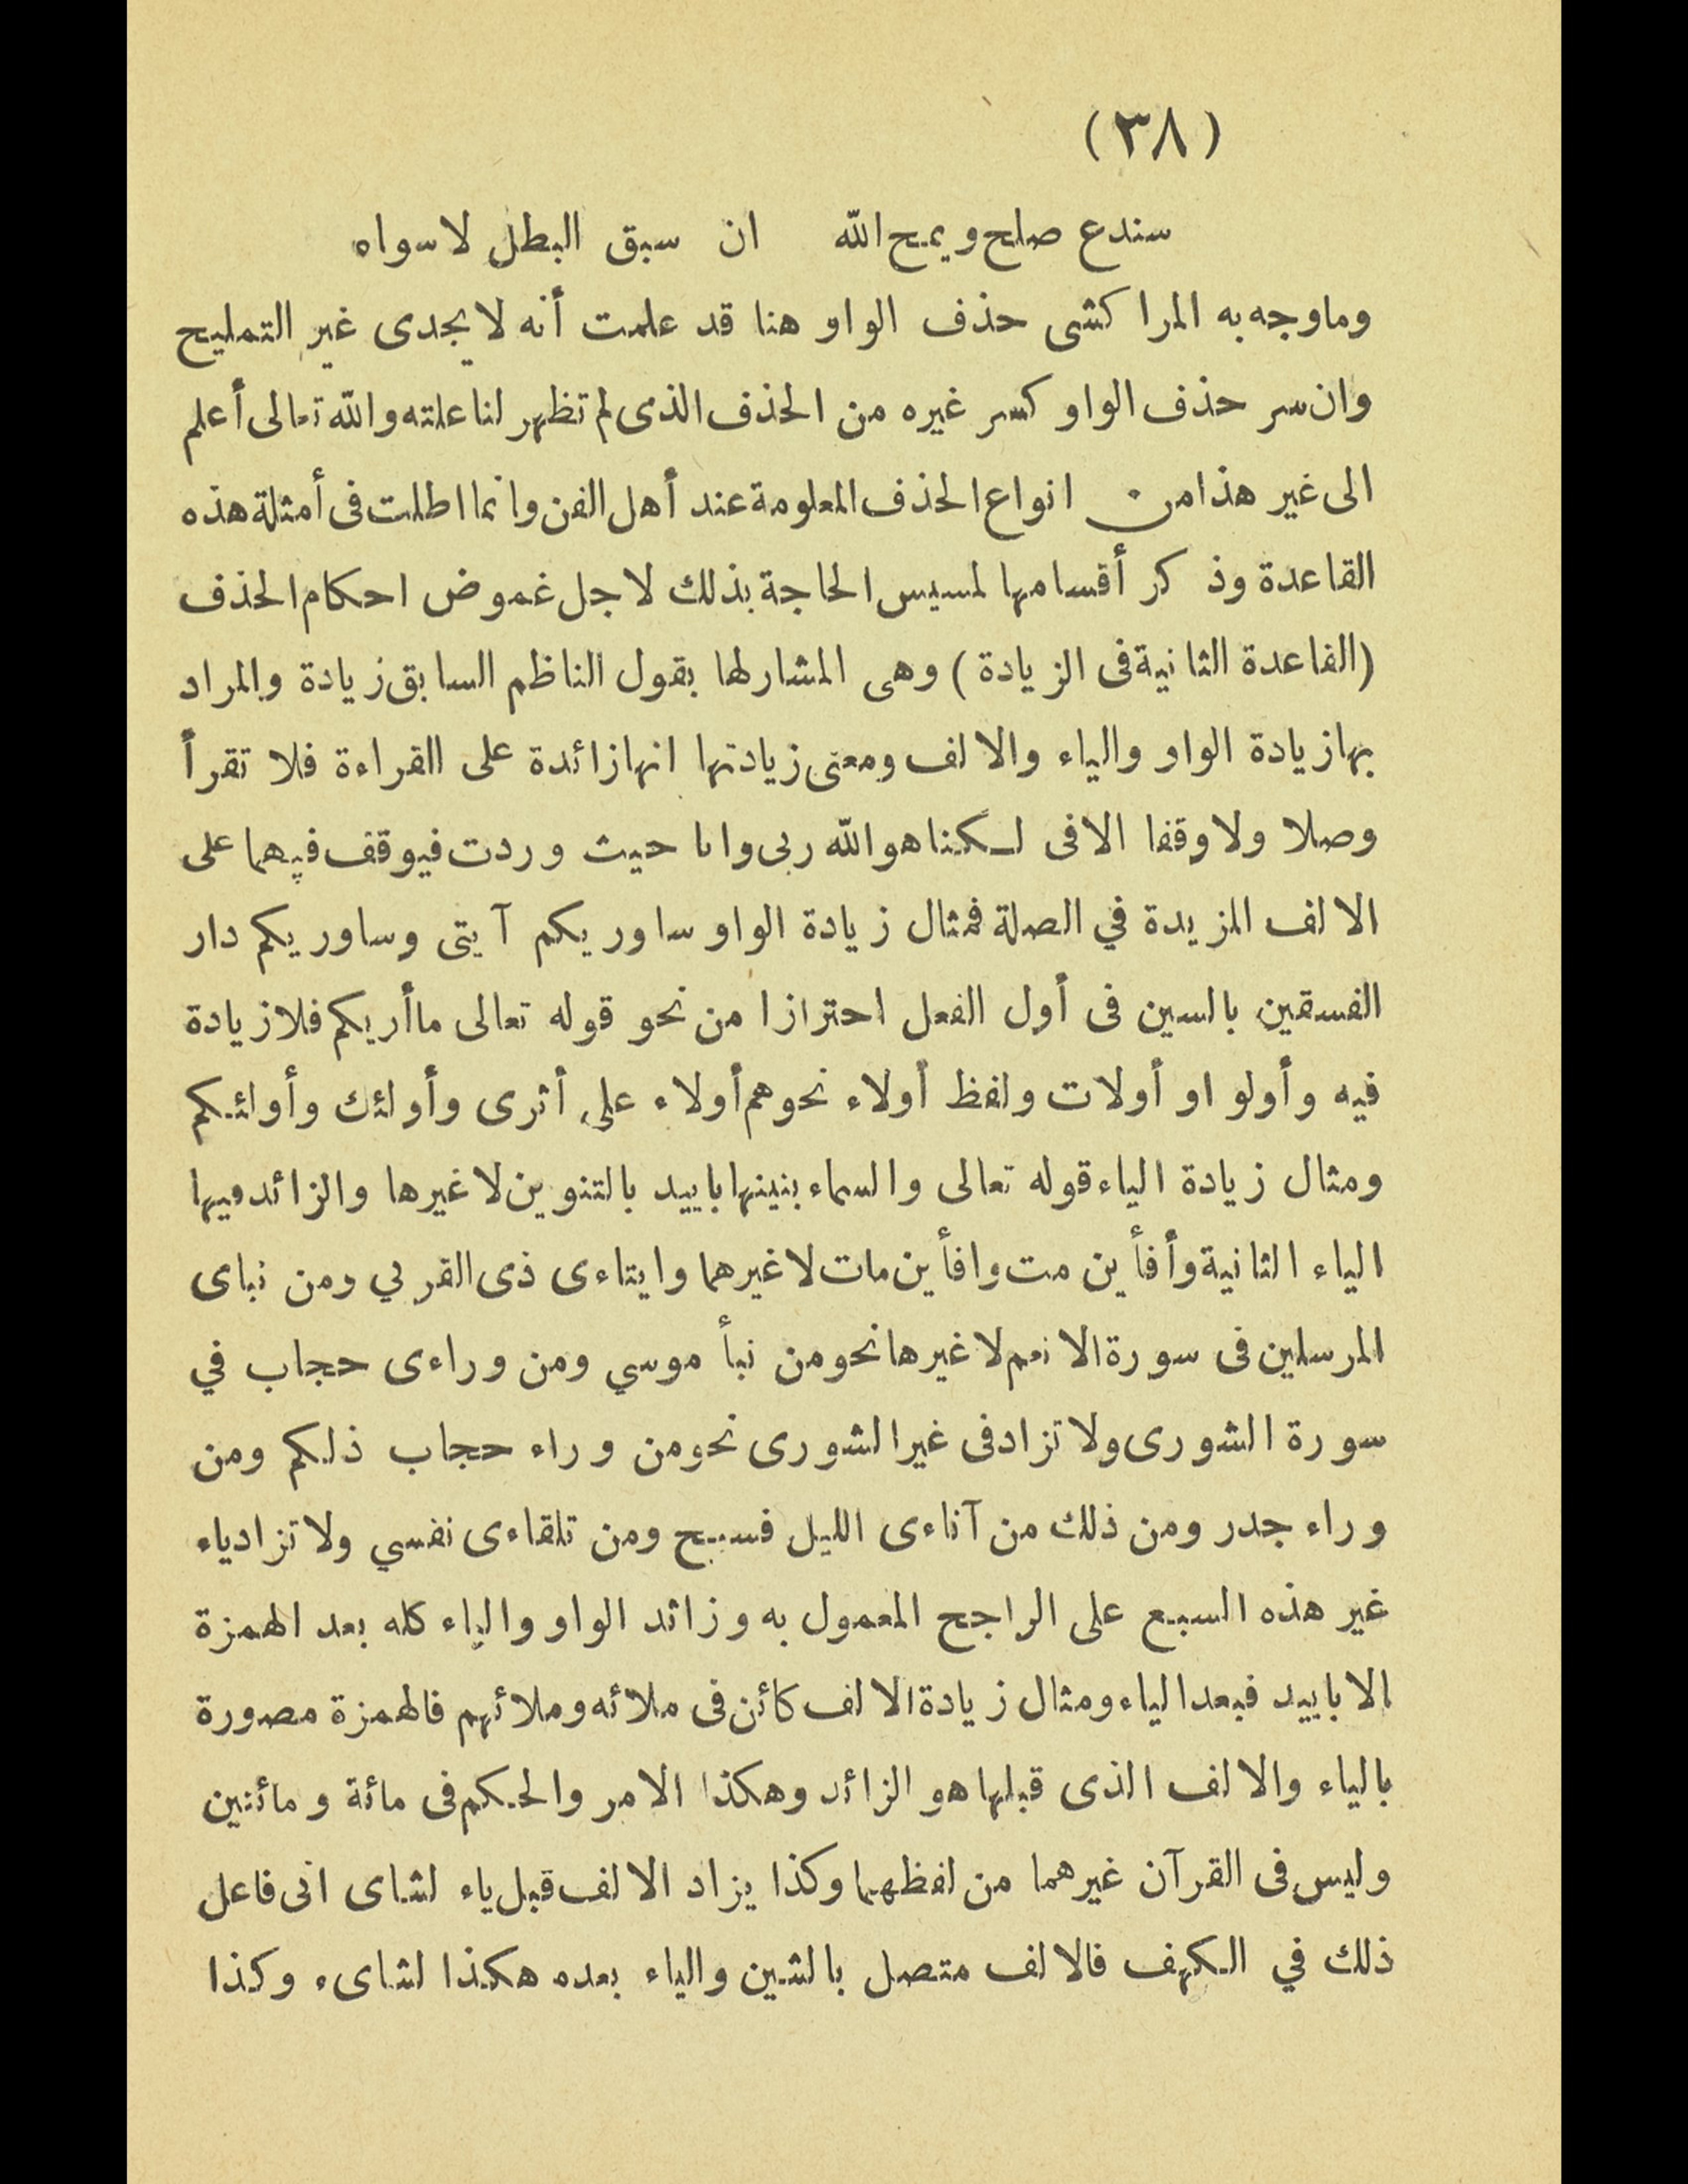 (٣٨)
سندع صلح ويمح الله ان سبق البطل لا سواه
وماوجه به المراكشى حذف الواو هنا قد علمت أنه لا يجدى غير التمليح
وان سر حذف الواو كسر غيره من الحذف الذى لم تظهر لنا علته والله تعالى أعلم
الى غير هذا من انواع الحذف المعلومة عند أهل الفن وانما اطلت فى أمثلة هذه
القاعدة وذكر أقسامها لمسيس الحاجة بذلك لاجل غموض احكام الحذف
(القاعدة الثانية فى الزيادة) وهى المشار لها بقول الناظم السابق زيادة والمراد
بها زيادة الواو والياء والالف ومعنى زيادتها انها زائدة على القراءة فلا تقرأ
وصلا ولا وقفا الا فى لـكنا هو الله ربى وانا حيث وردت فيوقف فيهما على
الالف المزيدة في الصلة فمثال زيادة الواو ساوريكم آيتى وساوريكم دار
الفسقين بالسين فى أول الفعل احترازا من نحو قوله تعالى ماأريكم فلا زيادة
فيه وأولو او أولات ولفظ أولاء نحو هم أولاء على أثرى وأولئك وأولئـكم
ومثال زيادة الياء قوله تعالى والسماء بنينها باييد بالتنوين لا غيرها والزائد فيها
الياء الثانية وأفأين مت وافأين مات لا غيرهما وايتاءى ذى القربي ومن نباى
المرسلين فى سورة الانعم لا غيرها نحو من نبأ موسي ومن وراءى حجاب في
سورة الشورى ولا تزاد فى غير الشورى نحو من وراء حجاب ذلـكم ومن
وراء جدر ومن ذلك من آناءى الليل فسبح ومن تلقاءى نفسي ولا تزاد ياء
غير هذه السبع على الراجح المعمول به وزائد الواو والياء كله بعد الهمزة
الا باييد فبعد الياء ومثال زيادة الالف كائن فى ملائه وملائهم فالهمزة مصورة
بالياء والالف الذى قبلها هو الزائد وهكذا الامر والحـكم فى مائة ومائتين
وليس فى القرآن غيرهما من لفظهما وكذا يزاد الالف قبل ياء لشاى انى فاعل
ذلك في الـكهف فالالف متصل بالشين والياء بعده هكذا لشاىء وكذا